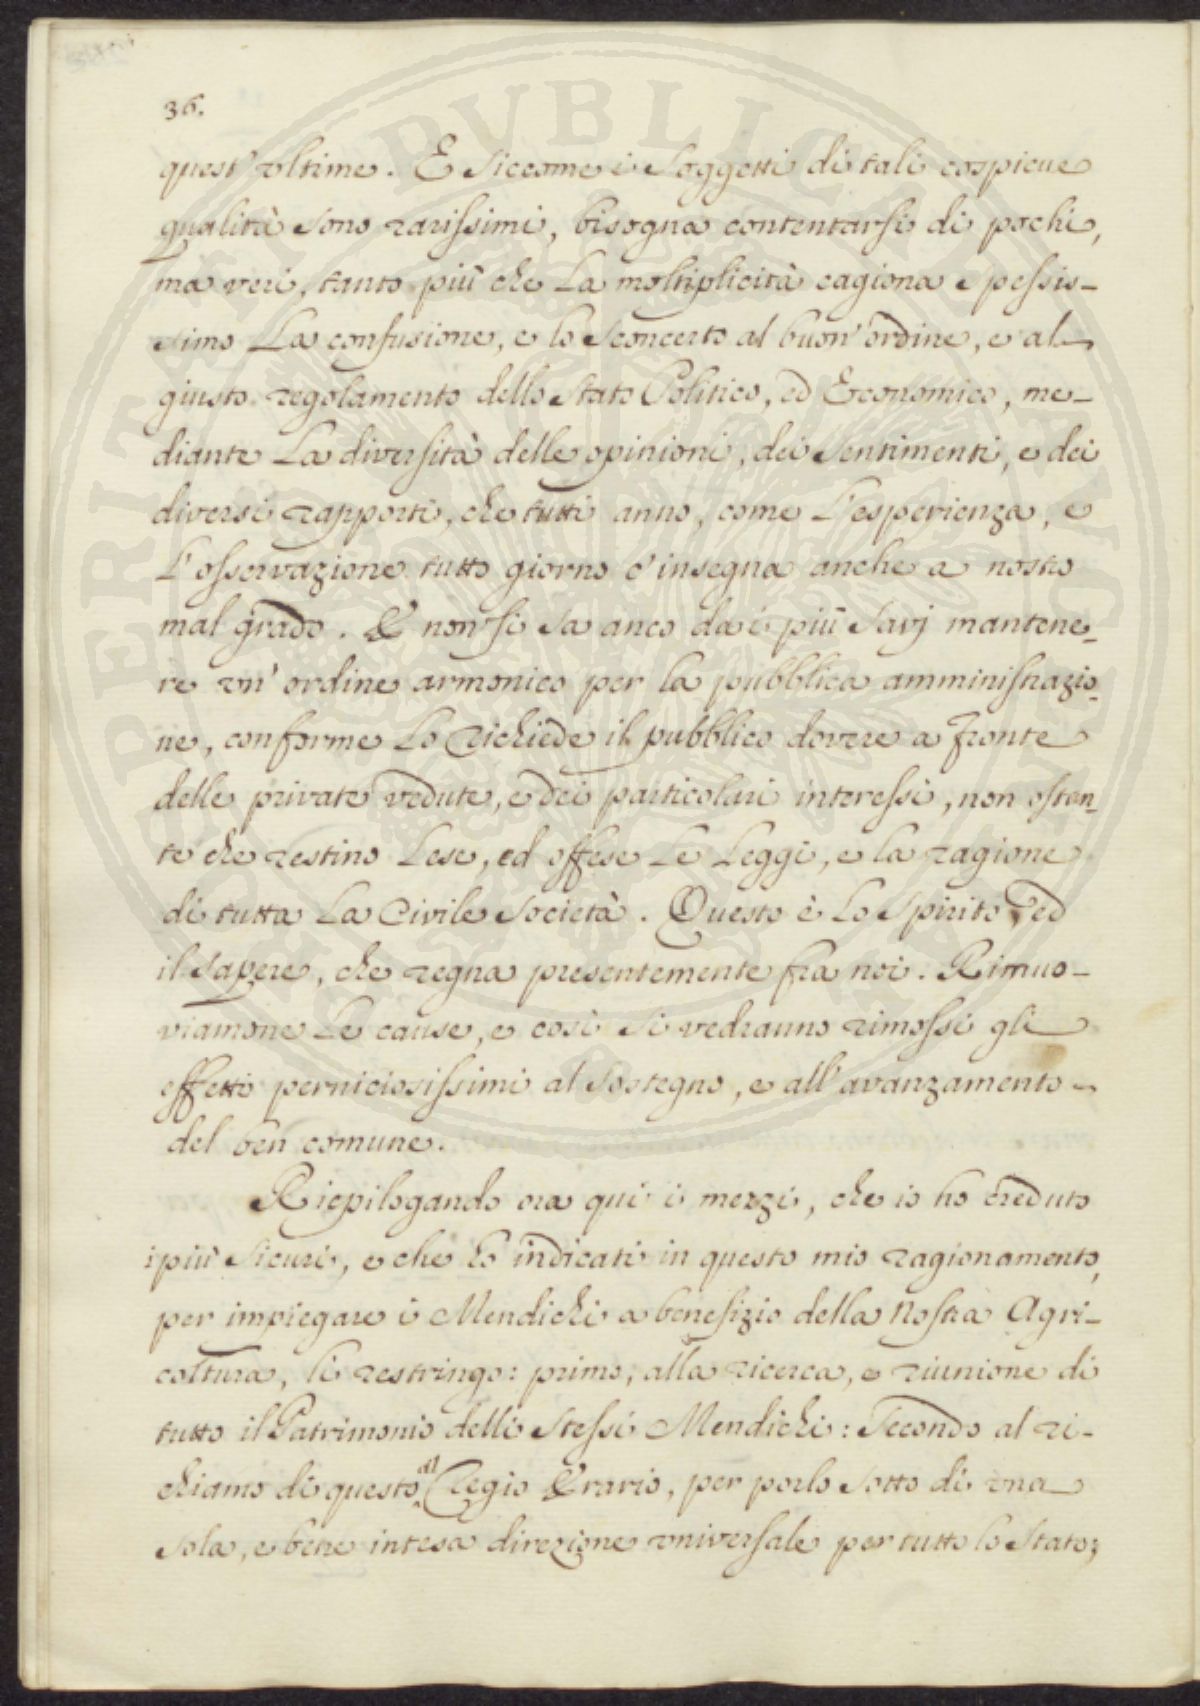 36.
quest' ultime. E siccome i Soggetti di tali cospicue
qualità sono rarissimi, bisogna contentarsi di pochi,
ma veri, tanto più che la moltiplicità cagiona spessis-
simo la confusione, e lo sconcerto al buon' ordine, e al
giusto regolamento dello Stato Politico, ed Economico, me-
diante la diversità delle opinioni, dei Sentimenti, e dei
diversi rapporti, che tutti anno, come l'esperienza, e
l'osservazione tutto giorno c'insegna anche a nostro
mal grado. E non si sa anco da i più Savj mantene-
re un' ordine armonico per la pubblica amministrazio-
ne, conforme lo richiede il pubblico dovere a fronte
delle private vedute, e dei particolari interessi, non ostan-
te che restino lese, ed offese le Leggi, e la ragione
di tutta la Civile Società. Questo è lo Spirito, ed
il Sapere, che regna presentemente fra noi. Rimuo-
viamone le cause, e così si vedranno rimossi gli
effetti perniciosissimi al Sostegno, e all'avanzamento
del ben comune.
Riepilogando ora qui i mezzi, che io ho creduto
i più Sicuri, e che ho indicati in questo mio ragionamento,
per impiegare i Mendichi a benefizio della Nostra Agri-
coltura, li restringo: primo, alla ricerca, e riunione di
tutto il Patrimonio delli Stessi Mendichi: Secondo al ri-
chiamo di questo al Regio Erario, per porlo sotto di una
sola, e bene intesa direzione universale per tutto lo Stato;